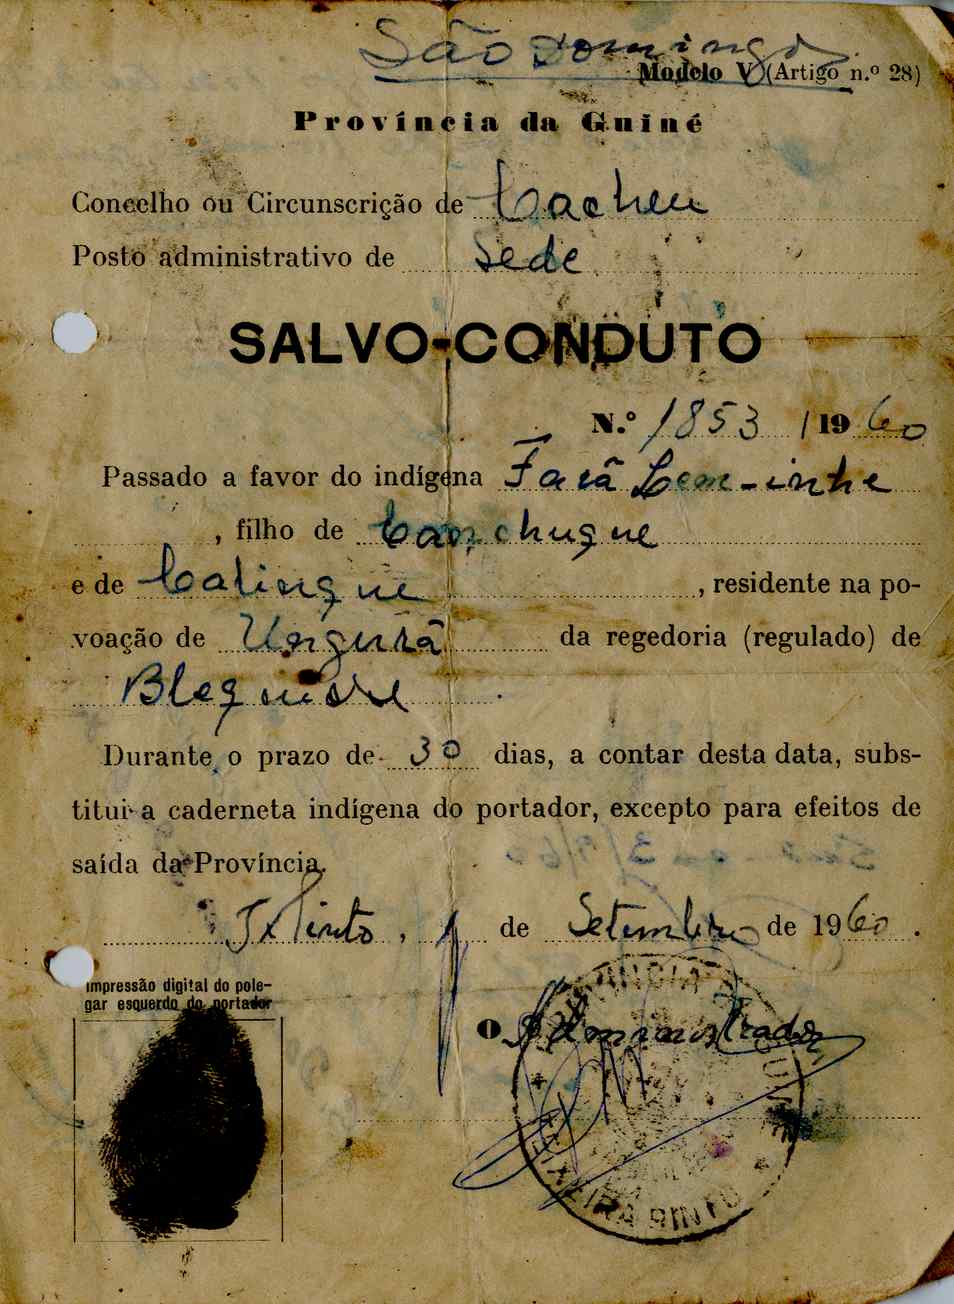 São Domingos
Modelo V (Artigo n.º 28)
Província da Guiné
Concelho ou Circunscrição de Cacheu
Posto administrativo de Sede
SALVO-CONDUTO
N.º 1853 / 1960
Passado a favor do indígena Fará
, filho de Canchugue
e de Calingue, residente na po-
voação de Ungurâ da regedoria (regulado) de
Durante o prazo de 30 dias, a contar desta data, subs-
titui a caderneta indígena do portador, excepto para efeitos de
saída da Província.
Tx Pinto, 1 de Setembro de 1960.
Impressão digital do pole-
gar esquerdo do portador
O Administrador
TEIXEIRA PINTO